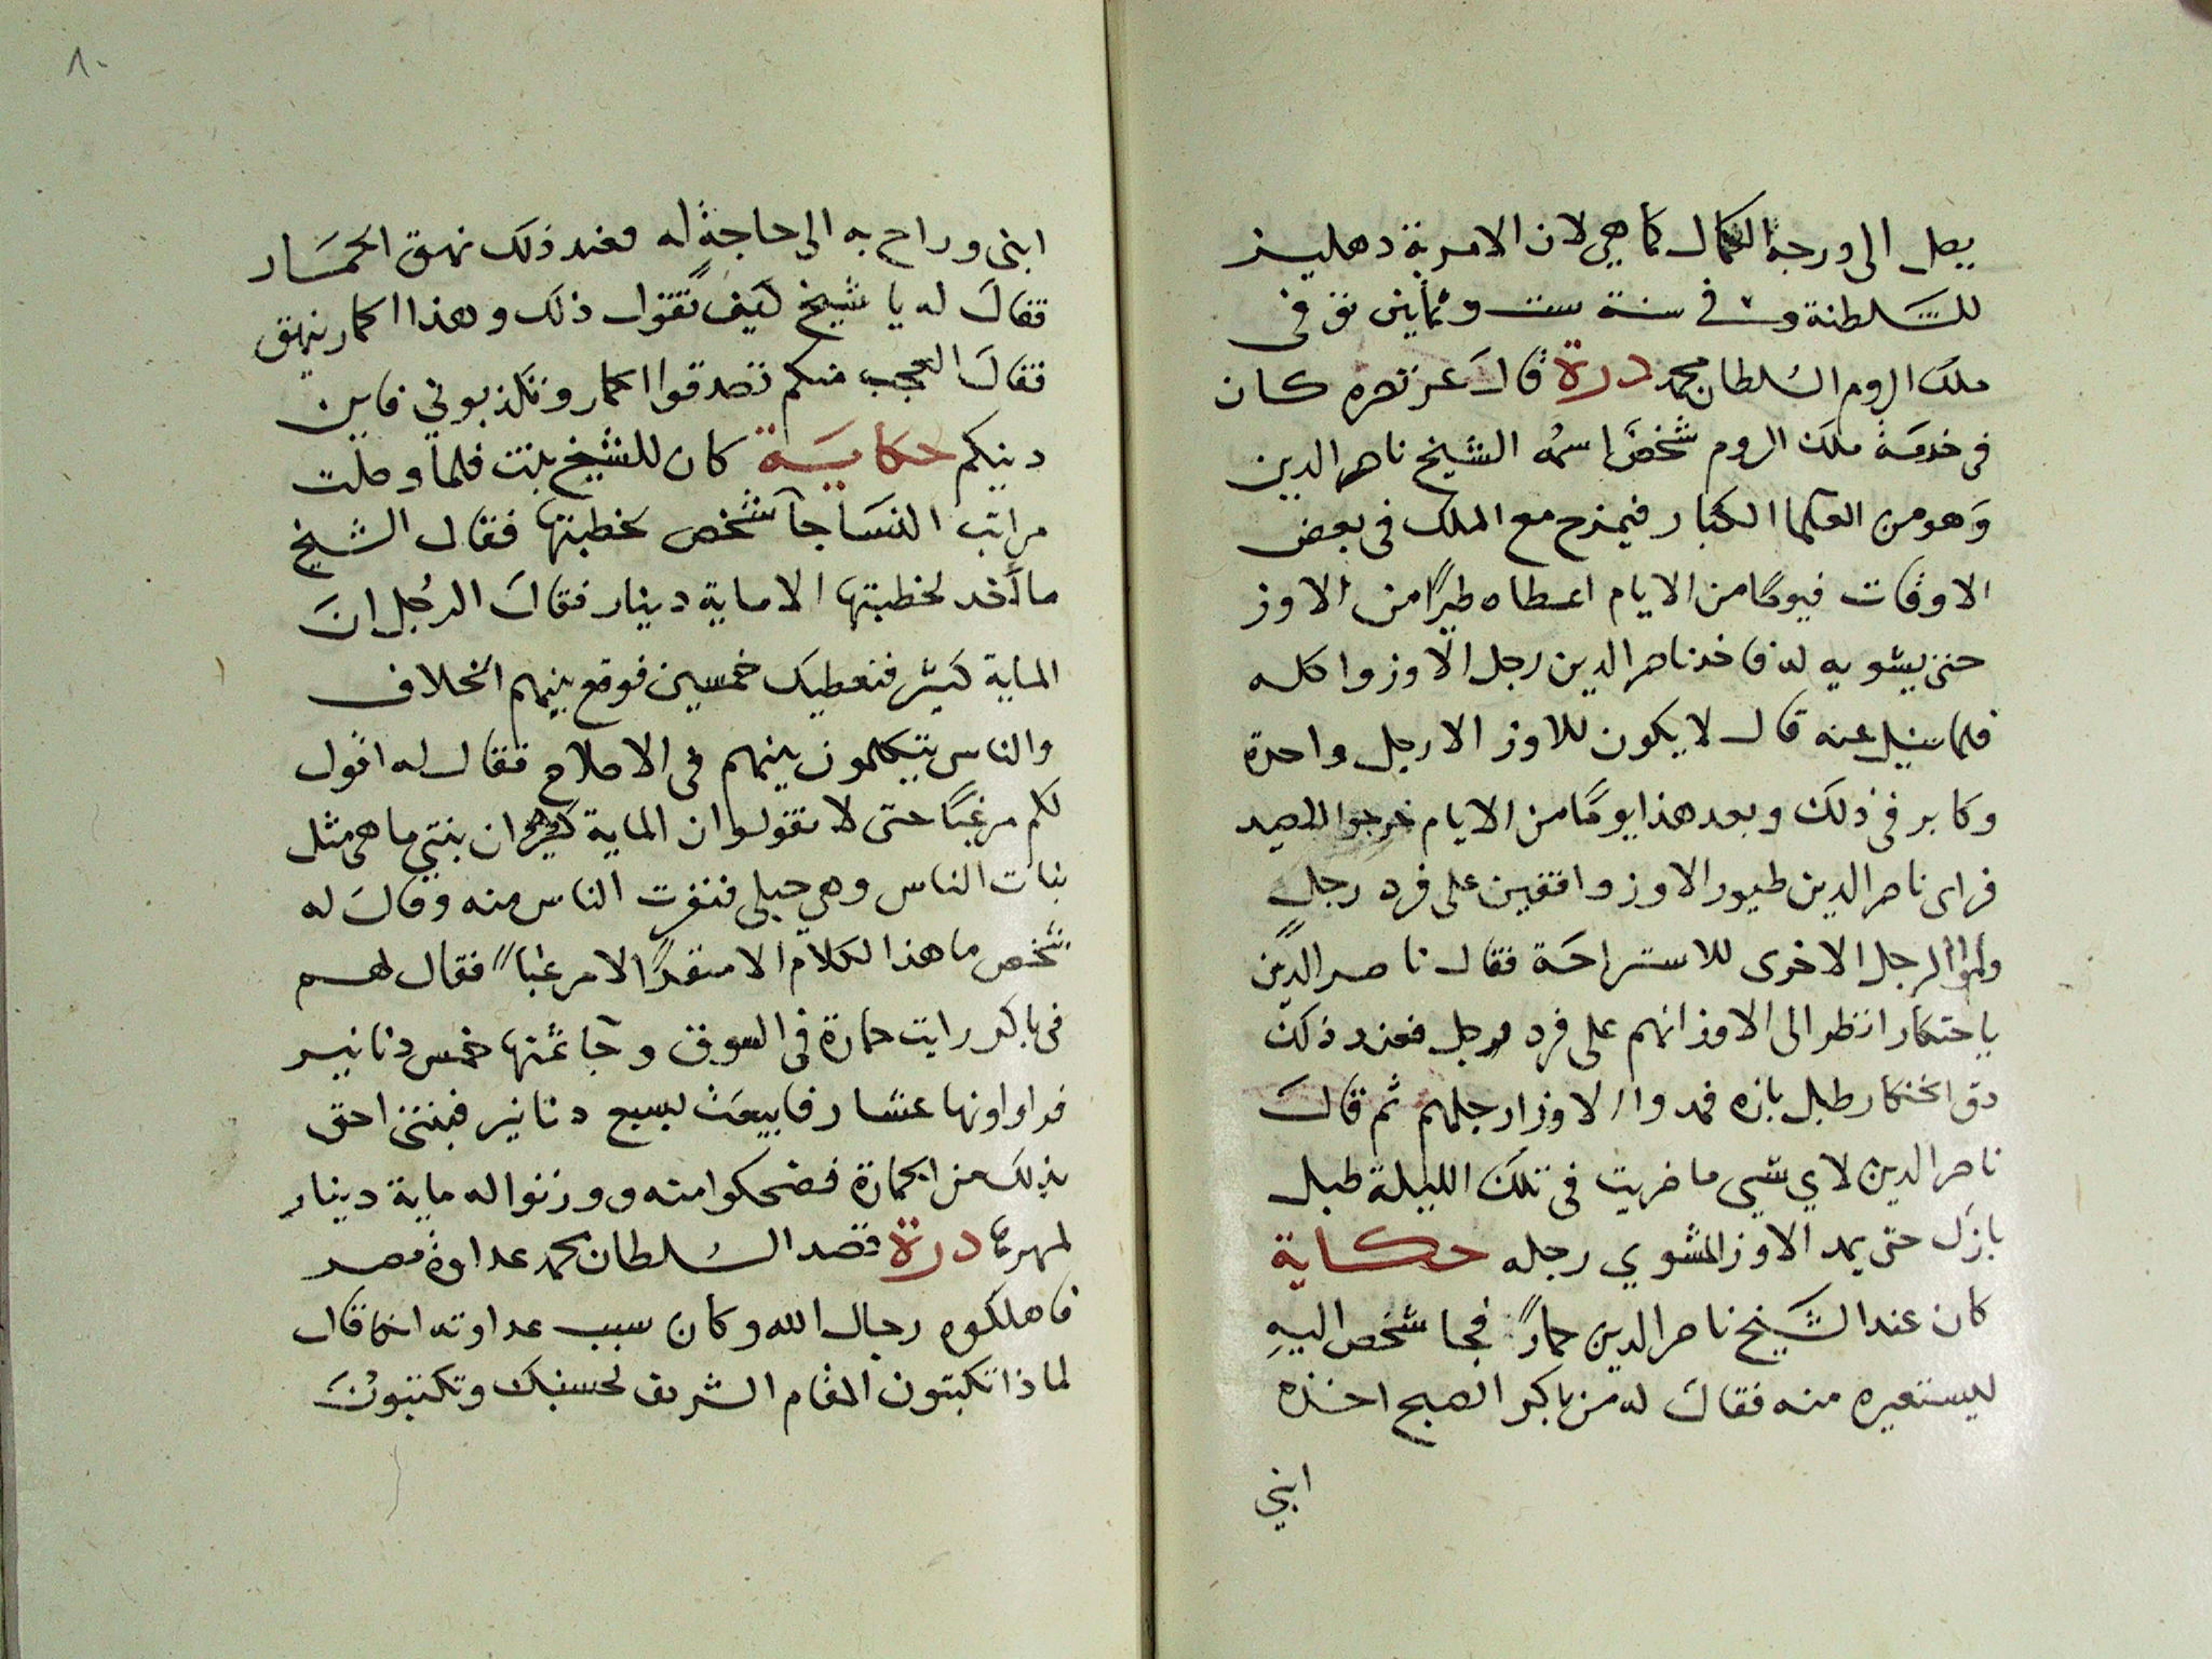 يصل الى درجة الكمال كما هي لان الامرية دهليز
للسلطنة وفي سنة ست وثمانين توفى
ملك الروم السلطان محمد درة قال عز نصره كان
فى خدمة ملك الروم شخصًا اسمه الشيخ ناصر الدين
وَهو من العلما الكبار فيمزح مع الملك فى بعض
الاوقات فيومًا من الايام اعطاه طيرًا من الاوز
حتى يشويه له فاخذ ناصر الدين رجل الاوز واكله
فلما سيل عنه قال لا يكون للاوز الا رجل واحدة
وكابر فى ذلك وبعد هذا يومًا من الايام خرجوا للصيد
فراى ناصر الدين طيور الاوز واقفين على فرد رجل
ولموا الرجل الاخرى للاستراحة فقال ناصر الدين
ياخنكار انظر الى الاوز انهم على فرد رجل فعند ذلك
دق الخنكار طبل بازه فمدوا الاوز ارجلهم ثم قال
ناصر الدين لاي شي ما ضربت فى تلك الليلة طبل
بازك حتى يمد الاوز المشوي رجله حكاية
كان عند الشيخ ناصر الدين حمارًا فجا شخص اليهِ
ليستعيره منه فقال له من باكر الصبح اخذه
ابني
٨٠
ابنى وراح به الى حاجة له فعند ذلك نهق الحمَار
فقال له يا شيخ كيف تقول ذلك وهذا الحمار ينهق
فقال العجب منكم تصدقوا الحمار وتكذبوني فاين
دينكم حكاية كان للشيخ بنت فلما وصلت
مراتب النسَا جآ شخص لخطبتها فقال الشيخ
ما آخد لخطبتها الا ماية دينار فقال الرُجل انَ
الماية كثير فنعطيك خمسين فوقع بينهم الخلاف
والناس يتكلمون بينهم فى الاصلاح فقال له اقول
لكم مرغبًا حتى لا تقولوا ان الماية كثير ان بنتي ما هى مثل
بنات الناس وهي حبلى فنفرت الناس منه وقال له
شخص ما هذا الكلام الا منفرًا لا مرغبًا فقال لهم
فى باكر رايت حمارة فى السوق وجآ ثمنها خمس دنانير
فراوا ونها عشار فابيعت بسبع دنانير فبنتى احق
بذلك من الحمارة فضحكوا منه ووزنوا له ماية دينار
لمهرها درة قصد السلطان محمد عداوة مصر
فاهلكوه رجال الله وكان سبب عداوته انما قال
لماذا تكبتون المقام الشريف لحسنبك وتكتبونَ